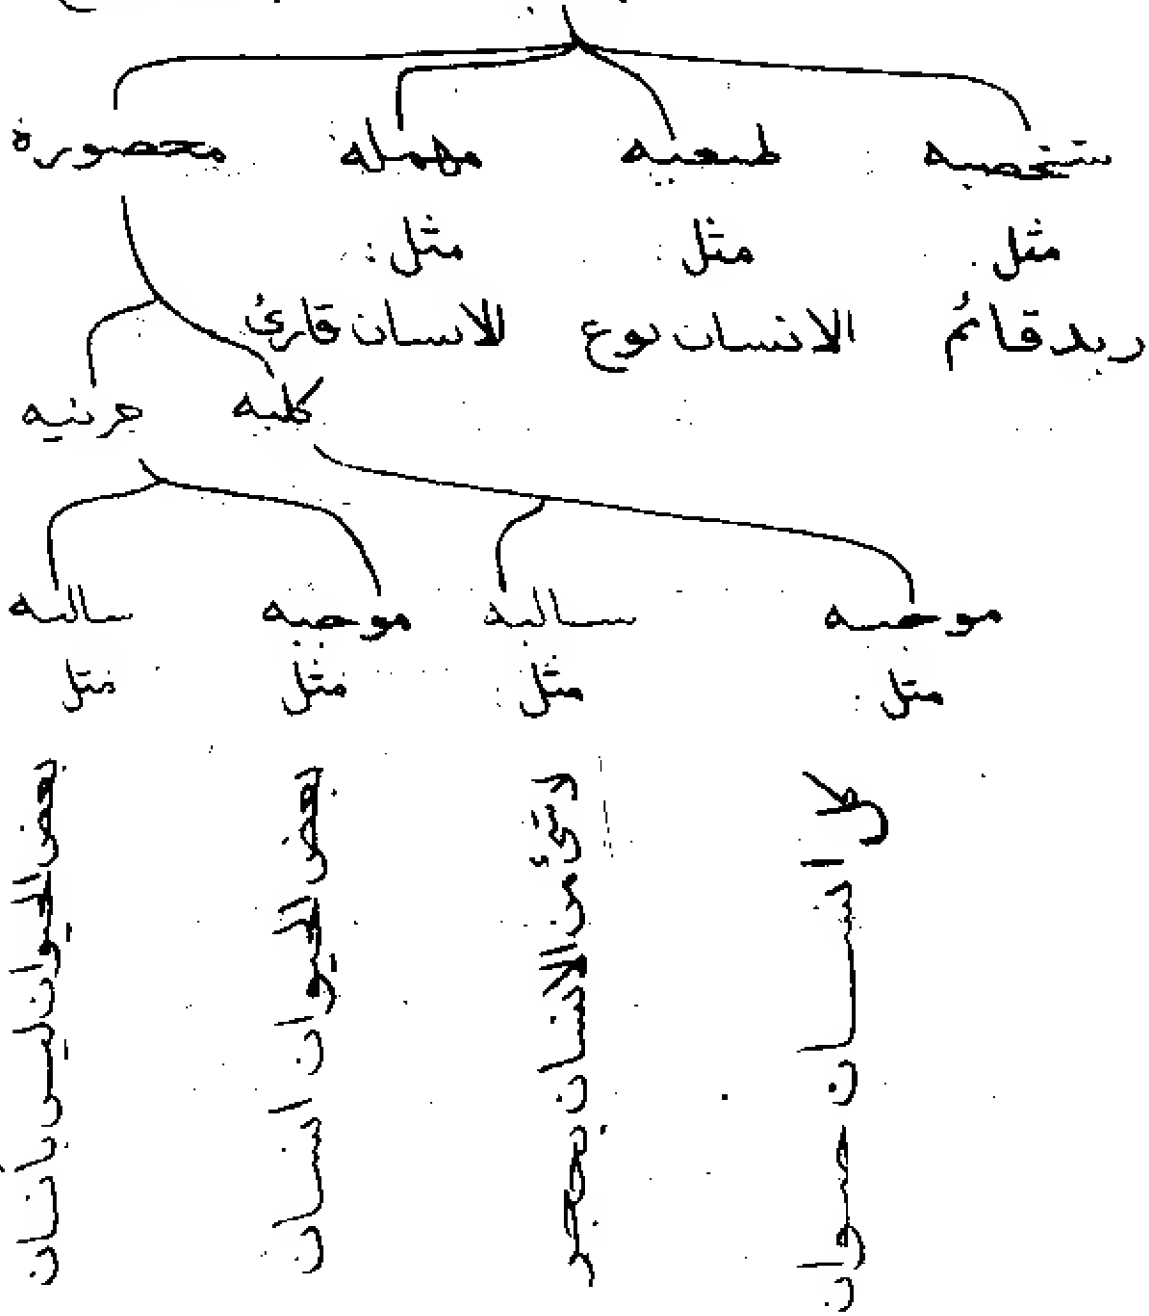 شخصية طبعية مهملة محصورة
مثل مثل : مثل :
زيد قائم الانسان نوع الانسان قارئ
كلية جزئية
موجبة سالبة موجبة سالبة
مثل : مثل : مثل مثل
كل انسان حيوان
لا شئ من الانسان بحجر
بعض الحيوان انسان
بعض الحيوان ليس بأنسان